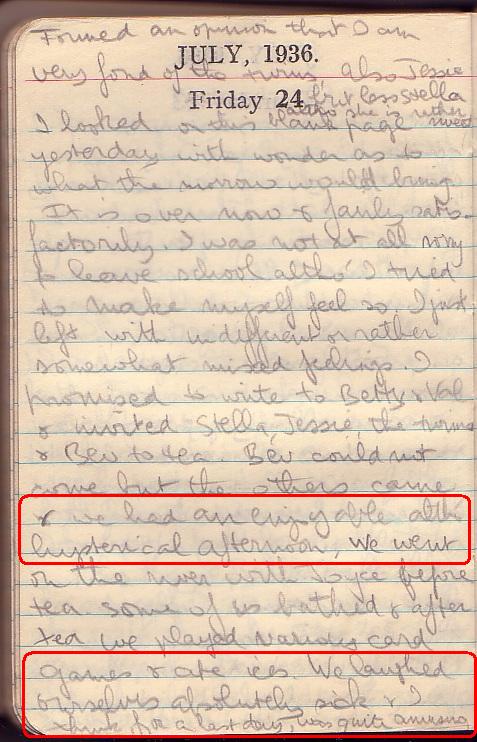 Formed an opinion that I am
JULY, 1936.
very fond of the twins, also Jessie
Friday 24.
but less Stella
altho she is rather sweet
I looked on this blank page
yesterday with wonder as to
what the morrow would bring
It is over now & fairly satis-
factorily. I was not at all sorry
to leave school altho' I tried
to make myself feel so I just
left with indifferent or rather
somewhat mixed feelings. I
promised to write to Betty & Val
& invited Stella, Jessie, the twins
& Bev to tea. Bev could not
come but the others came
& we had an enjoyable altho
hysterical afternoon, We went
on the river with Joyce before
tea some of us bathed & after
tea we played various card
games & ate ices. We laughed
ourselves absolutely sick & I
think for a last day, was quite amusing